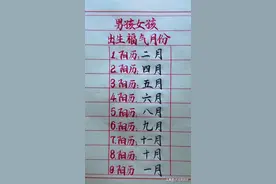 男孩女孩
出生福气月份
1.阳历:二月
2.阳历:四月
3.阳历:五月
4.阳历:六月
5.阳历:八月
6.阳历:九月
7.阳历:十一月
8.阳历:十月
9.阳历:一月